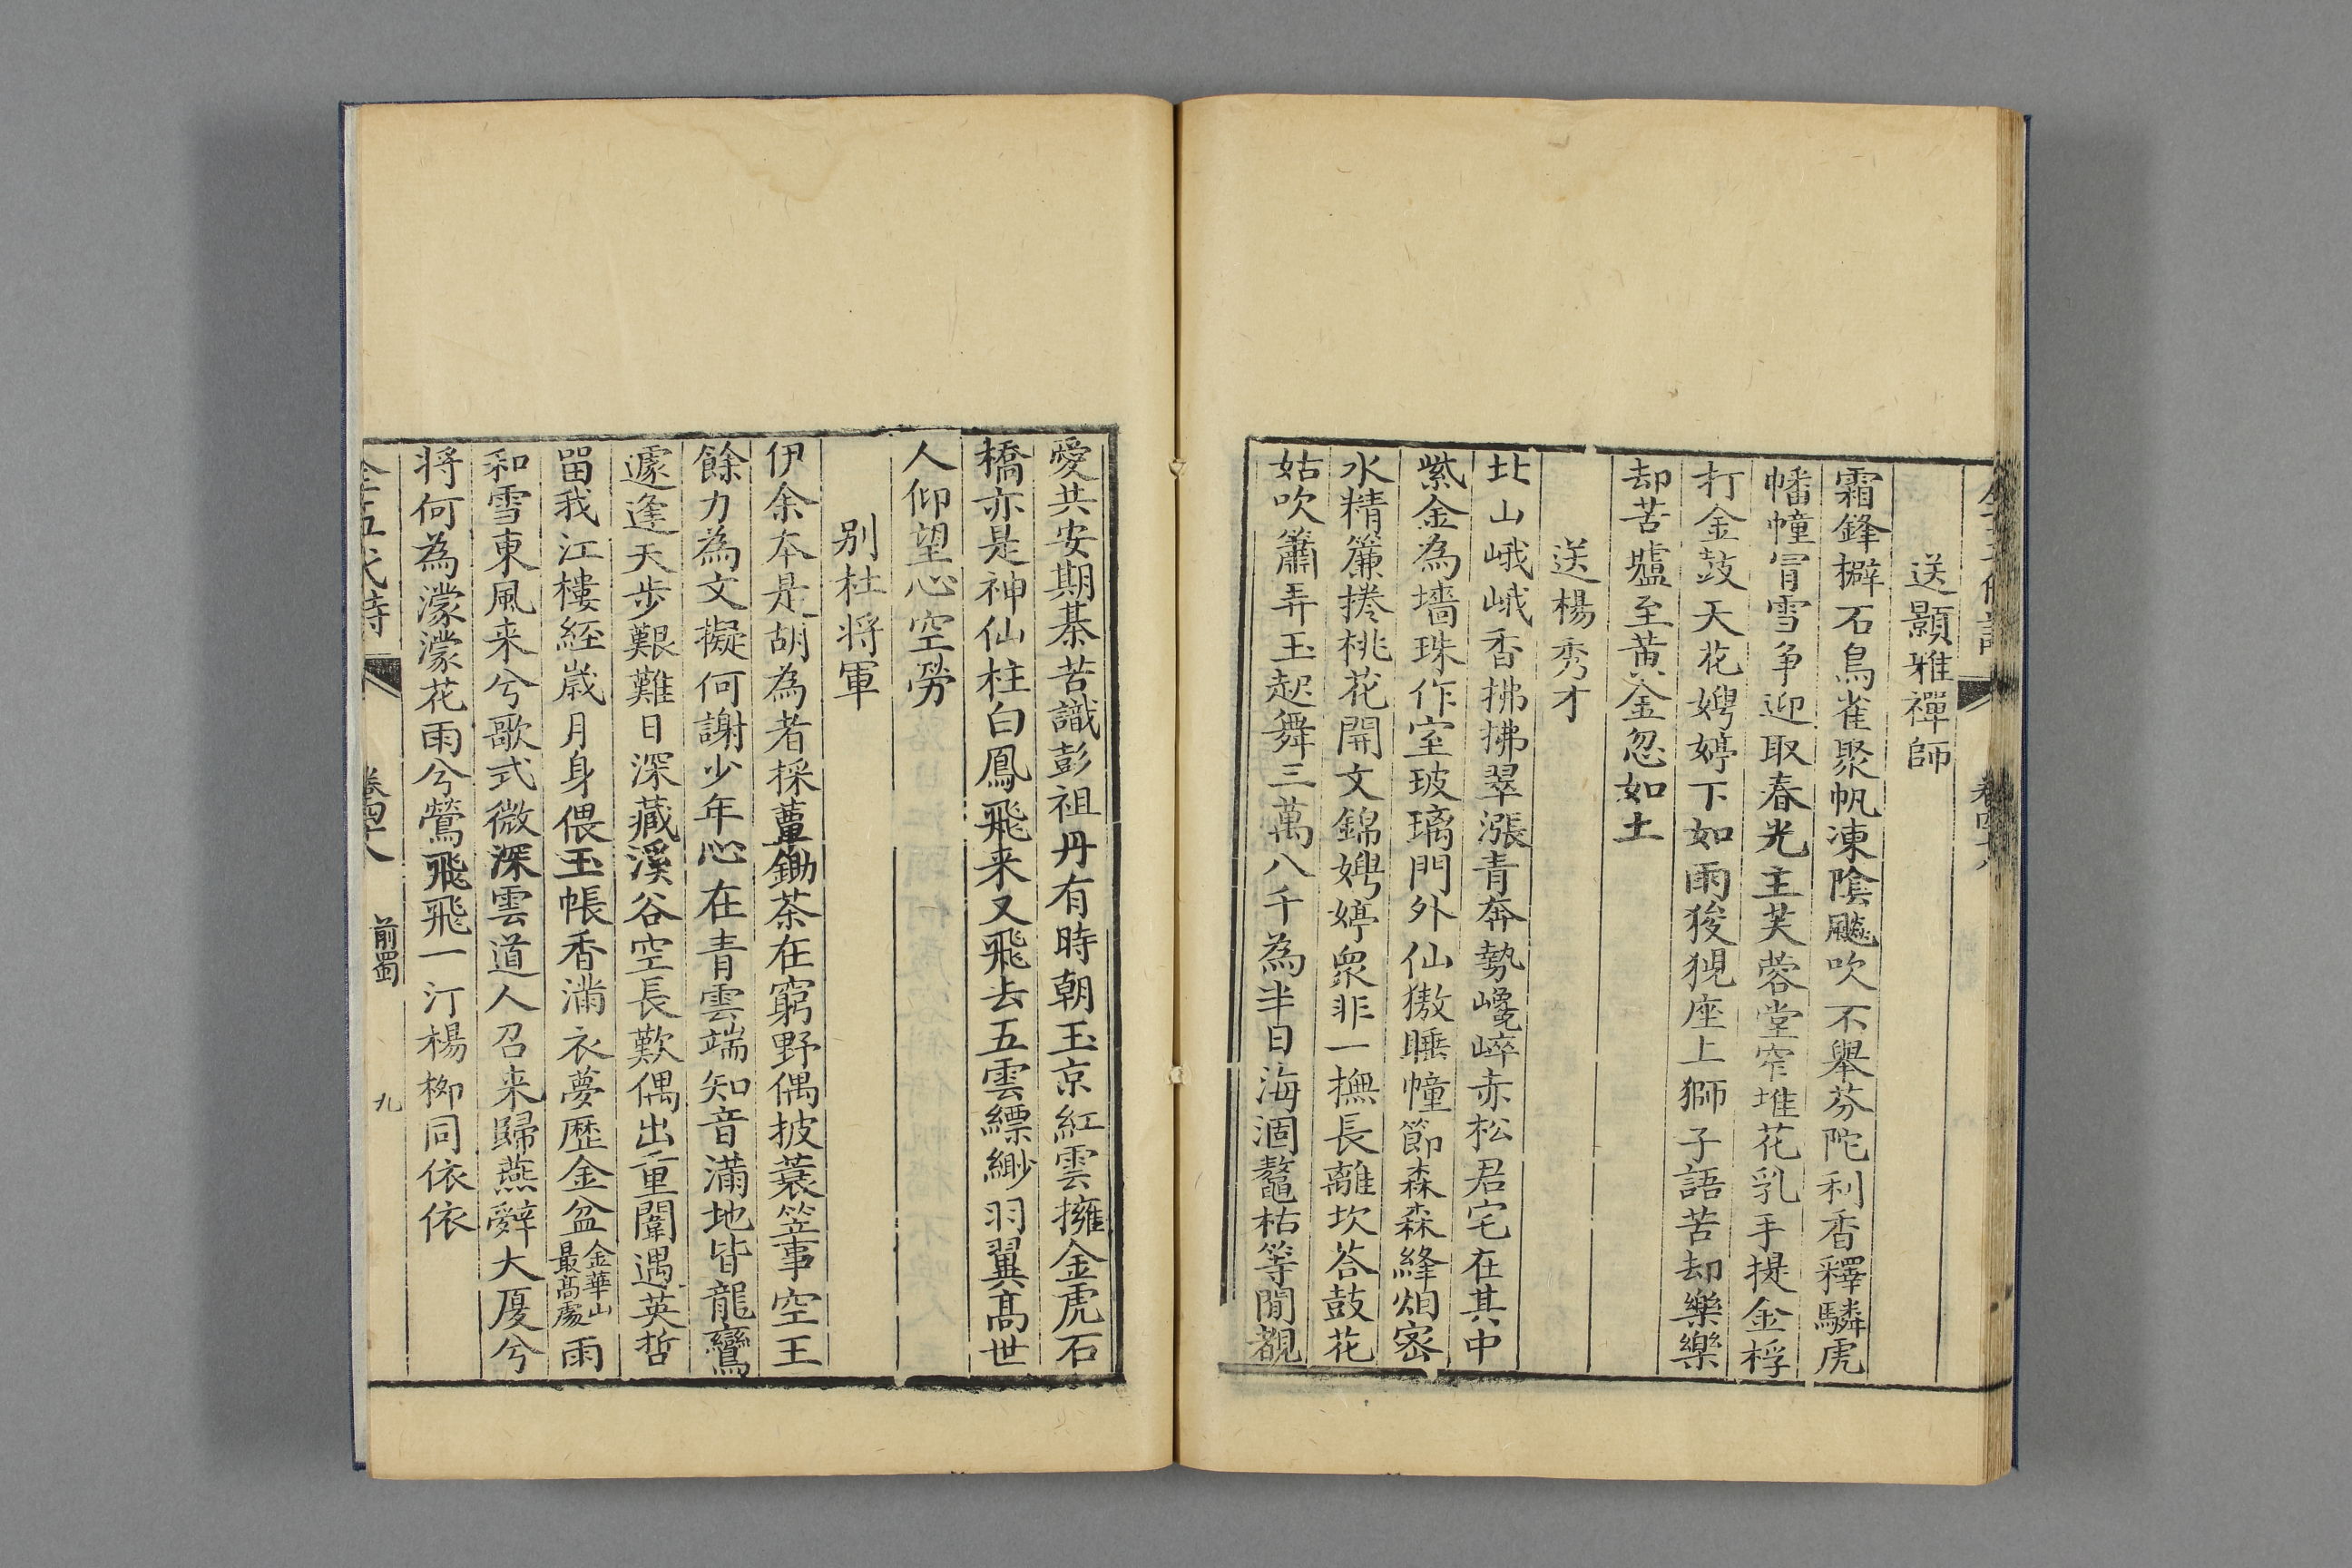 送顥雅禪師
霜鋒擗石鳥雀聚帆凍陰飈吹不舉芬陀利香釋驎虎
幡幢冐雪争迎取春光主芙蓉堂窄堆花乳手提金桴
打金鼓天花娉婷下如雨狻猊座上獅子語苦却樂樂
却苦壚至黄金忽如土
送楊秀才
北山峨峨香拂拂翠漲青奔勢巉崪赤松君宅在其中
紫金為墻珠作室玻璃門外仙獓睡幢節森森絳烟宻
水精簾捲桃花開文錦娉婷衆非一撫長離坎荅鼓花
姑吹簫弄玉起舞三萬八千為半日海涸鼇枯等閒覩
愛共安期棊苦識彭祖丹有時朝玉京紅雲擁金虎石
橋亦是神仙柱白鳳飛来又飛去五雲縹緲羽翼髙世
人仰望心空勞
别杜将軍
伊余本是胡為者採蕈鋤茶在窮野偶披蓑笠事空王
餘力為文擬何謝少年心在青雲端知音滿地皆龍鸞
遽逢天步艱難日深藏溪谷空長歎偶出重闈遇英哲
留我江樓經歲月身偎玉帳香滿衣夢歷金盆金華山最髙處雨
和雪東風来兮歌式微深雲道人召来歸燕辭大厦兮
将何為濛濛花雨兮鶯飛飛一汀楊柳同依依
全五代詩 卷四十八 前蜀 九